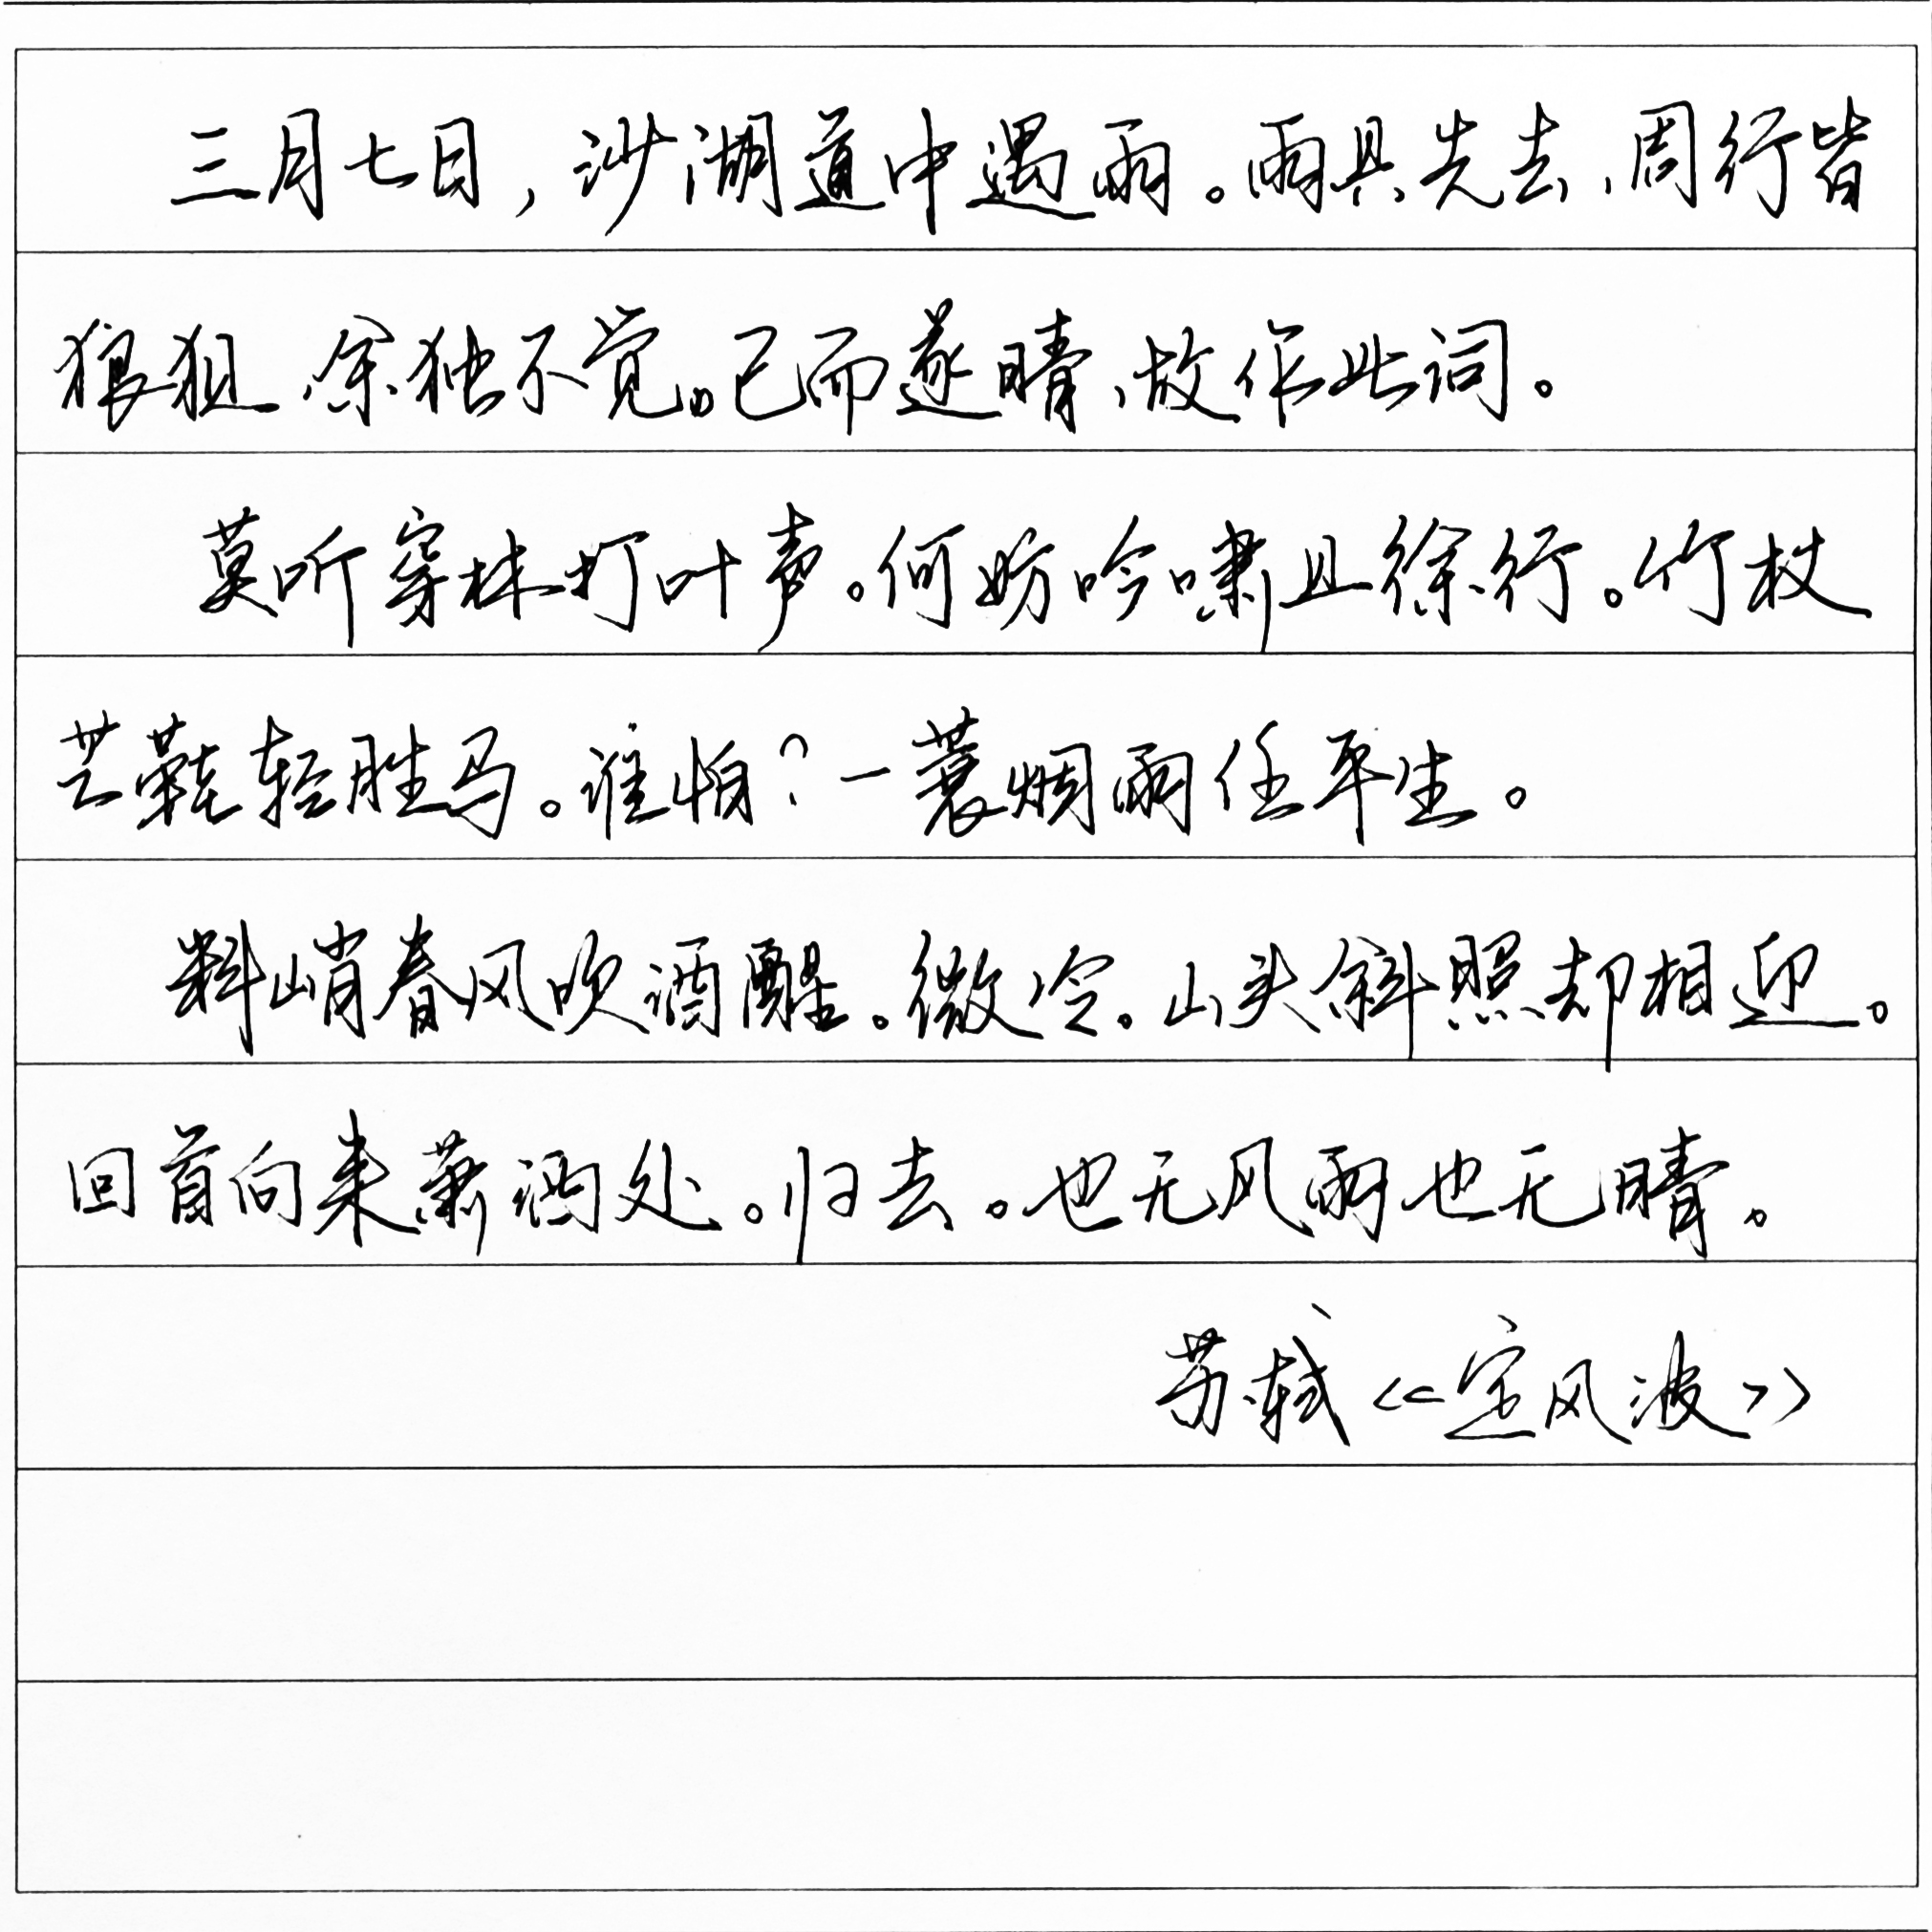 三月七日，沙湖道中遇雨。雨具先去、周行皆
狼狙、余独不觉。已而遂晴、故作此词。
莫听穿林打叶声。何妨吟啸且徐行。竹杖
芒鞋轻胜马。谁怕？一蓑烟雨任平生。
料峭春风吹酒醒。微冷。山头斜照却相迎。
回首向来萧洒处。归去。也无风雨也无晴。
苏轼《定风波》